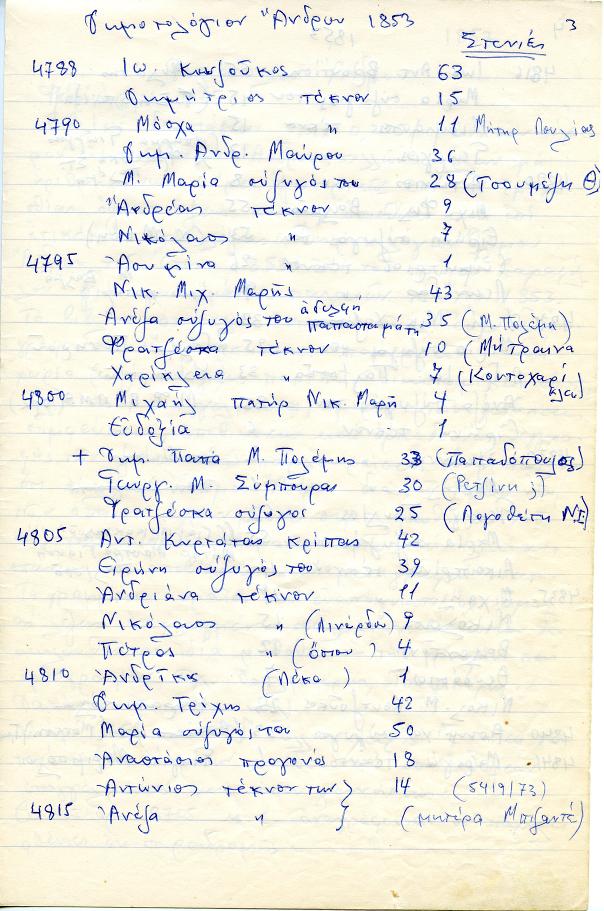 Δημοτολόγιον Ἄνδρου 1853 3
Στενιές
4788 Ιω. 63
Δημήτριος τέκνον 15
4790 Μόσχα " 11 Μήτηρ Λουλίας
Δημ. Ανδρ. Μαύρου 36
Μ. Μαρία σύζυγός του 28 (Τσουμέζη Θ)
Ἀνδρέας τέκνον 9
Νικόλαος " 7
4795 " 1
Νικ. Μιχ. Μαρῆς 43
Ανέζα σύζυγός του ἀδελφή παπασταμάτη 35 (Μ. Πολέμη)
Φρατζέσκα τέκνον 10 (Μήτραινα
Χαρίκλεια " 7 (Κοντοχαρίκλεια)
4800 Μιχαήλ πατήρ Νικ. Μαρῆ 4
Εὐδοξία 1
+ Δημ. Παπα Μ. Πολέμης 33 (Παπαδόπουλος)
Γεωργ. Μ. Σύμπουρας 30 (Ρετζίνης)
Φρατζέσκα σύζυγος 25 (Λογοθέτη Ν.Ι)
4805 Αντ. Κυρτάτας κρίπας 42
Ειρήνη σύζυγός του 39
Ἀνδριάνα τέκνον 11
Νικόλαος " (Λινέρδου) 9
Πέτρος " (ὅπου) 4
4810 Ἀνδρίκος (Λέκα) 1
Δημ. Τρίχης 42
Μαρία σύζυγός του 50
Ἀναστάσιος προγονός 18
Αντώνιος τέκνον των } 14 (5419/73)
4815 Ἀνέζα " } (μητέρα Μπιζαντέ)